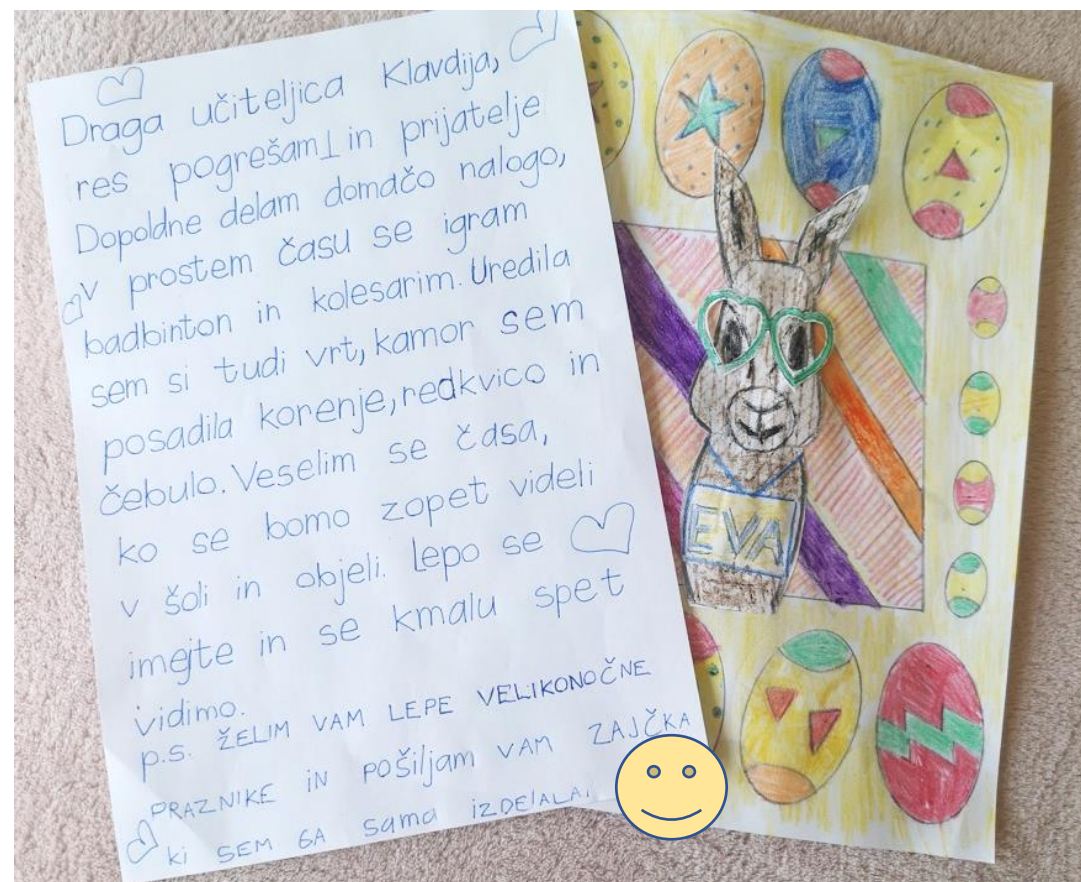 Draga učiteljica Klavdija,
res pogrešam in prijatelje
Dopoldne delam domačo nalogo,
v prostem času se igram
badbinton in kolesarim. Uredila
sem si tudi vrt, kamor sem
posadila korenje, redkvico in
čebulo. Veselim se časa,
ko se bomo zopet videli
v šoli in objeli. Lepo se
imejte in se kmalu spet
vidimo.
p.s. ŽELIM VAM LEPE VELIKONOČNE
PRAZNIKE iN POŠiljam VAM ZAJČKA
ki SEM GA sama iZDElALA.
EVA